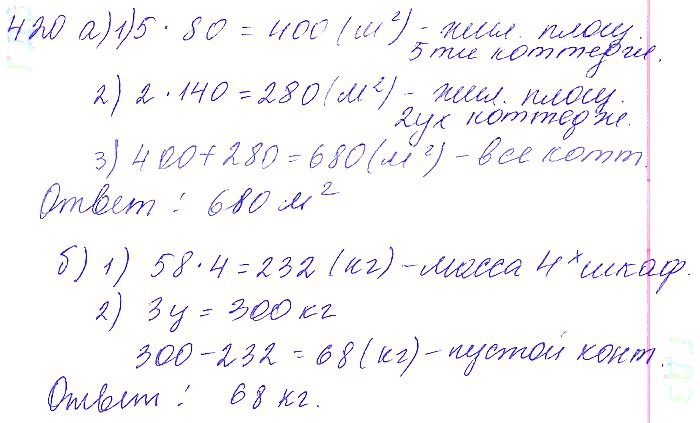 420 а) 1) 5 · 80 = 400 (м²) - жил. площ.
5ти коттедж.
2) 2 · 140 = 280 (м²) - жил. площ.
2ух коттедж.
3) 400 + 280 = 680 (м²) - все котт.
Ответ : 680 м²
б) 1) 58 · 4 = 232 (кг) - масса 4х шкаф.
2) 3ц = 300 кг
300 - 232 = 68 (кг) - пустой конт.
Ответ : 68 кг.
ГДЗ
ГДЗ